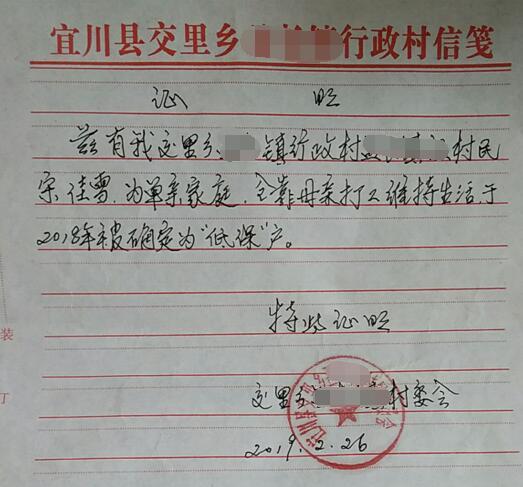 宜川县交里乡 行政村信笺
证 明
兹有我交里乡 镇行政村 村民
宋佳雪,为单亲家庭,全靠母亲打工维持生活,于
2018年被确定为“低保”户。
特此证明
交里乡 村委会
2019.2.26
装
订